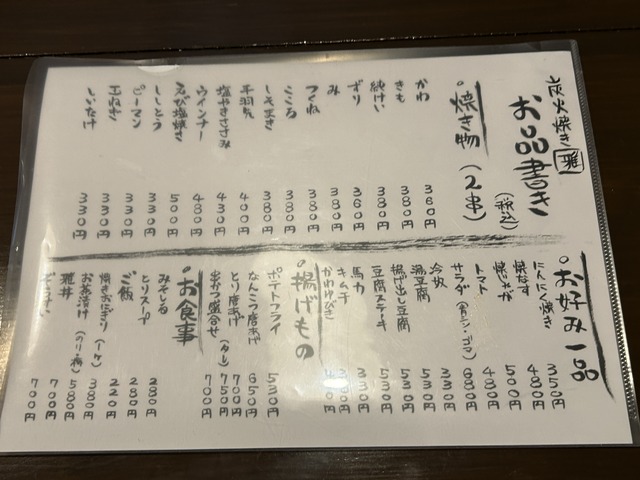 炭火焼き 雅
お品書き (税込)
焼き物 (2串)
かわ 360円
きも 380円
純けい 380円
ずり 360円
み 380円
つくね 380円
こころ 380円
しそまき 380円
手羽先 400円
塩やきささみ 430円
ウインナー 480円
えび塩焼き 500円
ししとう 330円
ピーマン 330円
玉ねぎ 330円
しいたけ 330円
お好み一品
にんにく焼き 350円
焼なす 480円
焼じゃが 500円
トマト 480円
サラダ 680円
冷奴 330円
湯豆腐 530円
揚げ出し豆腐 530円
豆腐ステーキ 530円
馬力 330円
キムチ
かわゆびき
揚げもの
ポテトフライ 530円
なんこつ唐あげ 650円
とり唐あげ 700円
(タレ) 750円
串かつ盛合せ 700円
お食事
みそしる 280円
とりスープ 280円
ご飯 220円
焼きおにぎり (1ケ) 380円
お茶漬け (のり・梅) 580円
雅丼 700円
ぞうすい 700円